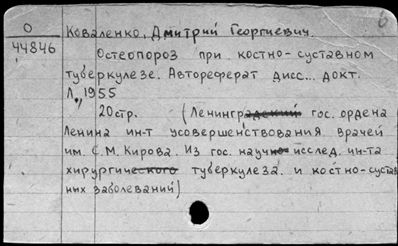 О
44846
Коваленко, Дмитрий Георгиевич.
Остеопороз при костно-суставном
туберкулезе. Автореферат дисс... докт.
Л., 1955
20стр. (Ленинградский гос. ордена
Ленина ин-т усовершенствования врачей
им. С.М. Кирова. Из гос. научно исслед. ин-та
хирургического туберкулеза и костно-сустав
ных заболеваний)